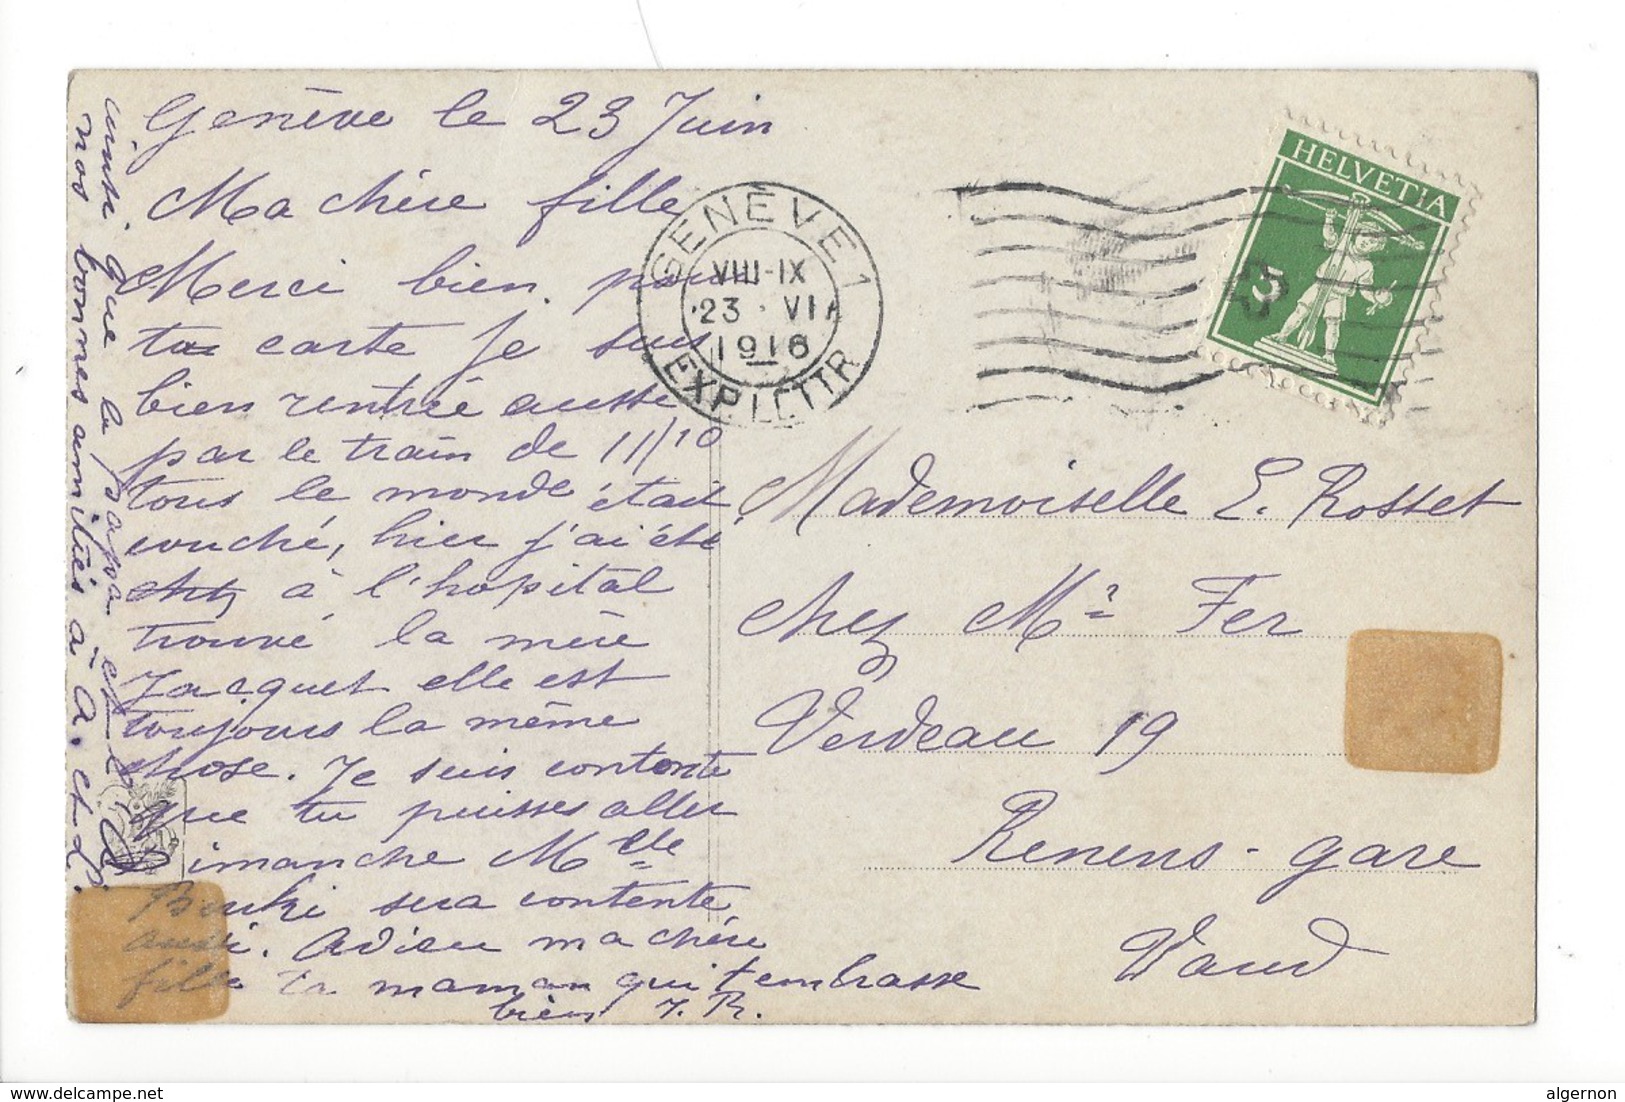 Genève le 23 Juin
Ma chère fille
Merci bien pour
ta carte je suis
bien rentrée aussi
par le train de 11/10
tous le monde était
couché, hier j'ai été
à l'hopital
trouvé la mère
Jacquet elle est
toujours la même
chose. Je suis contente
que tu puisses aller
Dimanche Melle
sera contente
aussi. Adieu ma chère
fille ta maman qui t'embrasse
bien J. R.
ainsi que le papa et
nos bonnes amitiés à A. et L.
GENÈVE 1
VIII-IX
23 · VI
1916
EXP. LETTR
HELVETIA
5
Mademoiselle E. Rosset
chez Mr Fer
Verdeau 19
Renens-gare
Vaud
www.delcampe.net
algernon